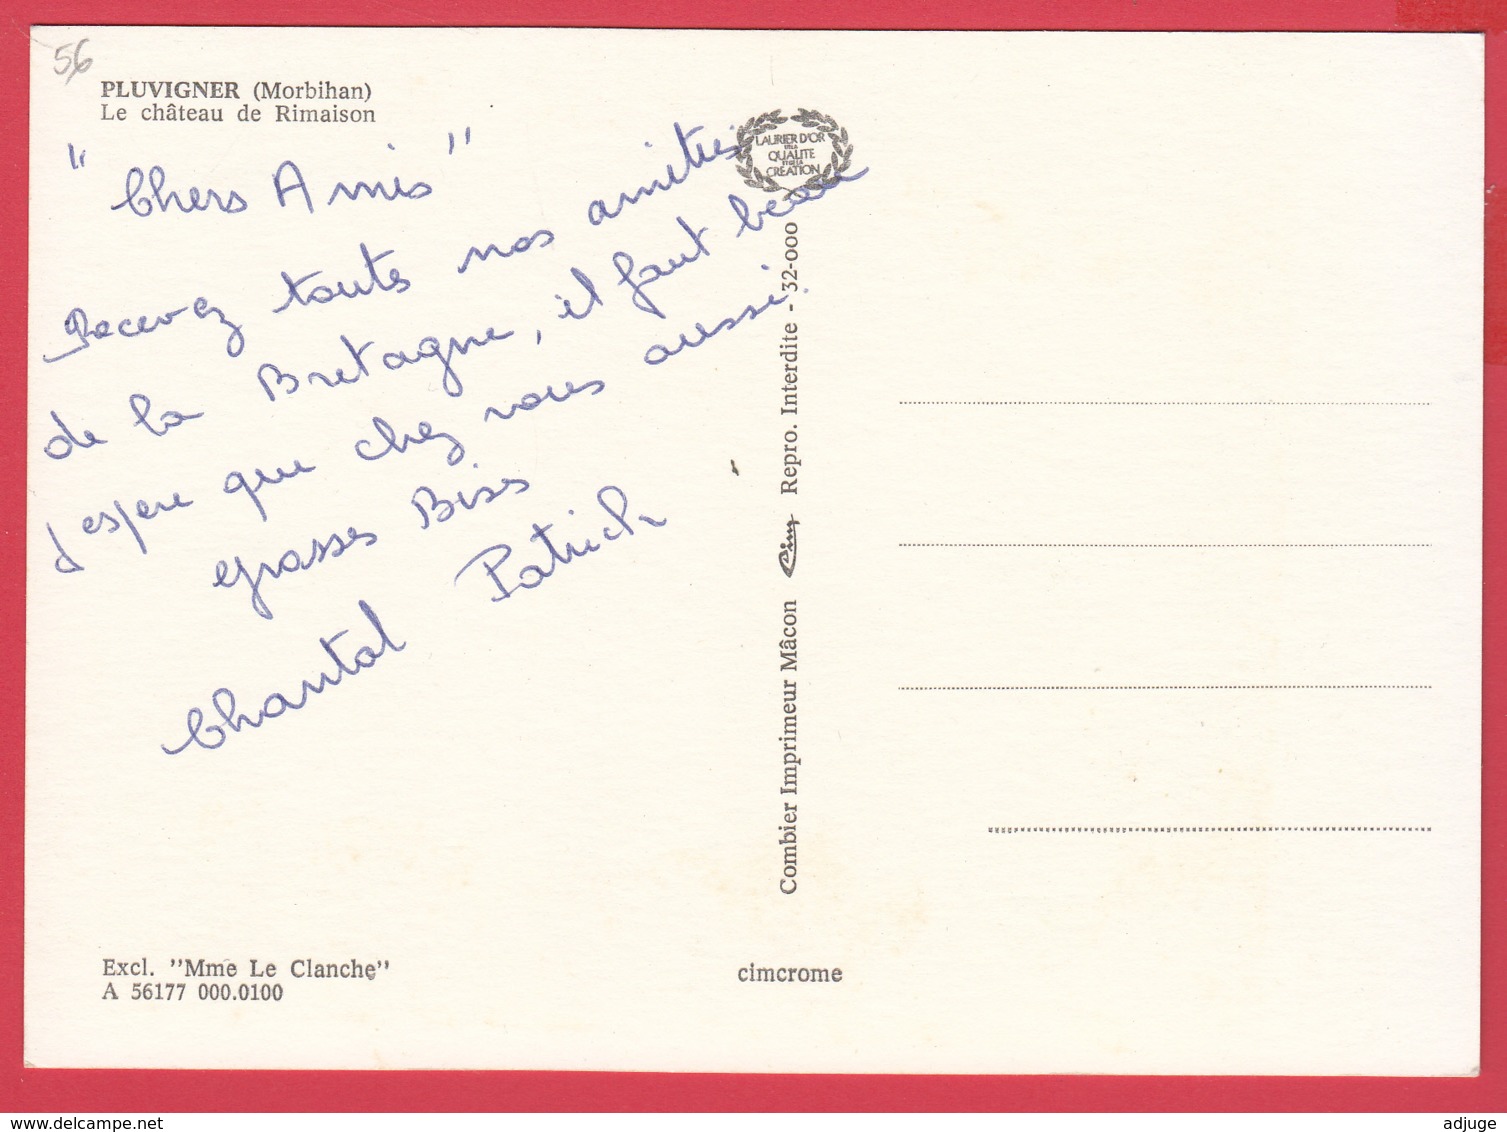 56
PLUVIGNER (Morbihan)
Le château de Rimaison
" Chers Amis "
Recevez toutes nos amitiés
de la Bretagne, il faut beau
j'espere que chez vous aussi.
grosses Bises
Chantal Patrick
LAURIER D'OR
DE LA
QUALITE
ET DE LA
CRÉATION
Combier Imprimeur Mâcon Cim Repro. Interdite - 32-000
Excl. "Mme Le Clanche"
A 56177 000.0100
cimcrome
adjuge